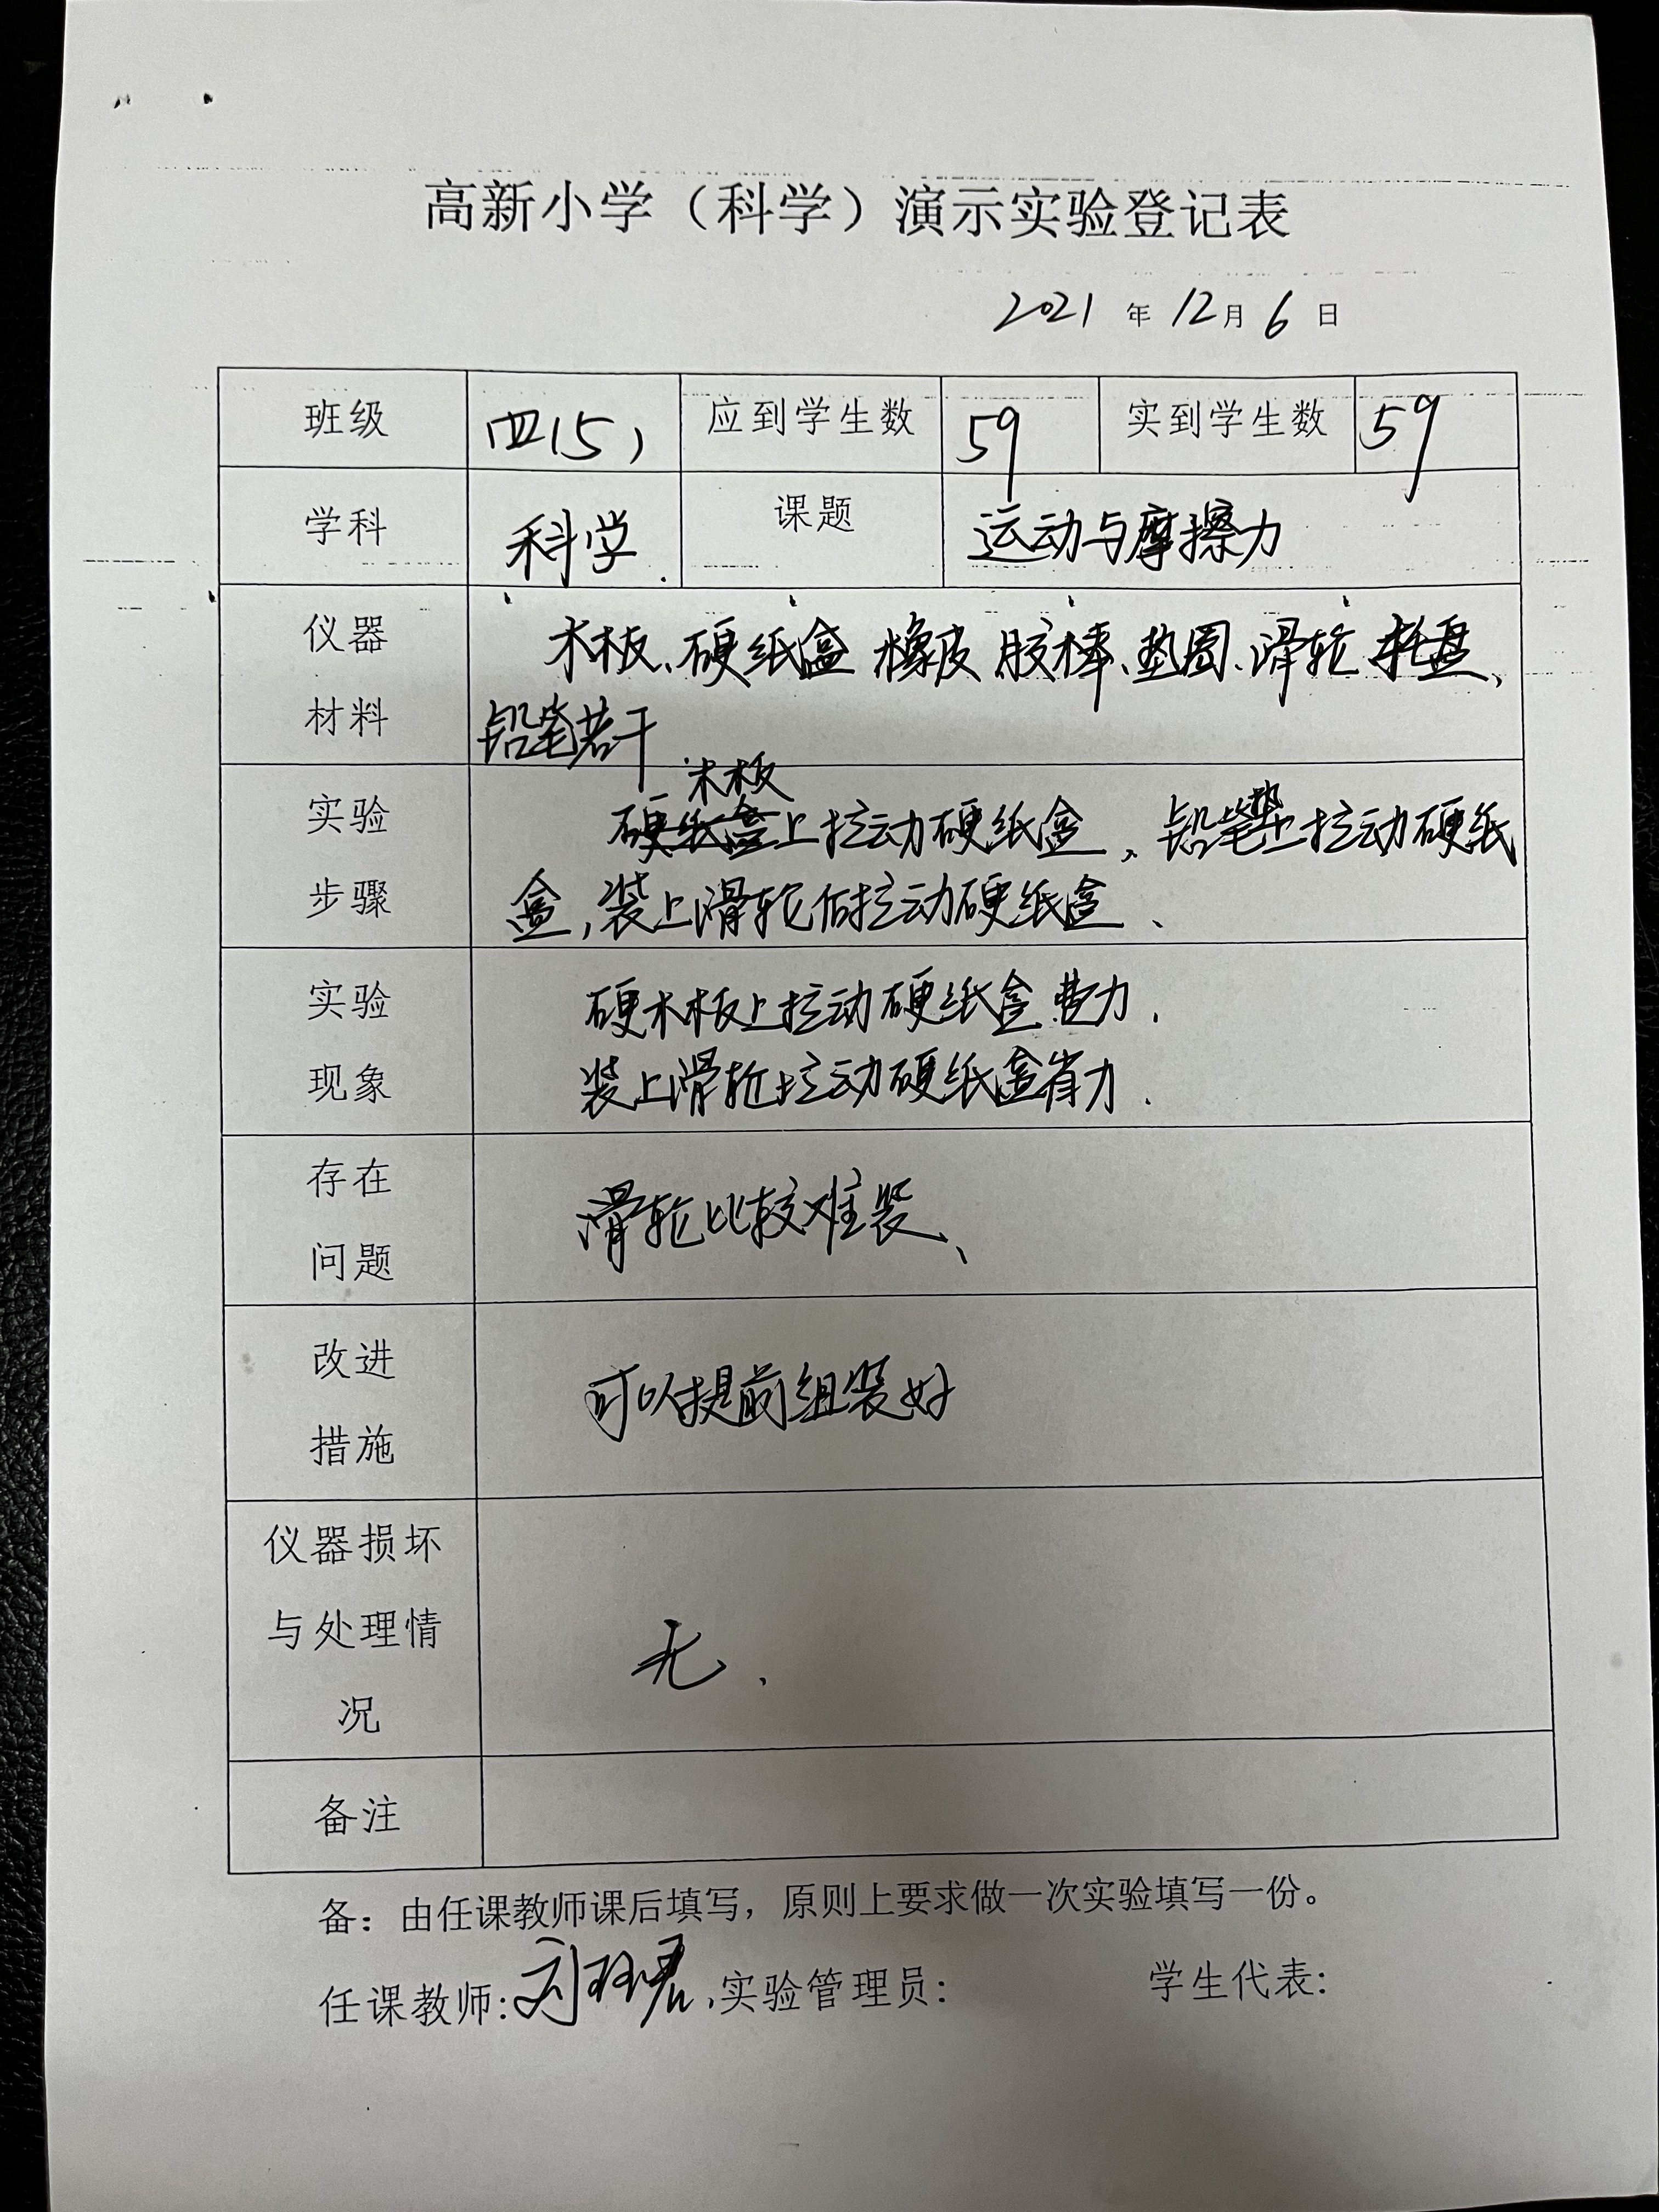 高新小学（科学）演示实验登记表
2021 年 12 月 6 日
班级 四(5) 应到学生数 59 实到学生数 59
学科 科学. 课题 运动与摩擦力
仪器 木板、硬纸盒 橡皮 胶棒、垫圈、滑轮 托盘、
材料 铅笔若干
木板
实验 硬纸盒上拉动硬纸盒、铅笔垫上拉动硬纸
步骤 盒,装上滑轮后拉动硬纸盒、
实验 硬木板上拉动硬纸盒费力.
现象 装上滑轮拉动硬纸盒省力.
存在
问题
滑轮比较难装、
改进
措施
可以提前组装好
仪器损坏
与处理情
况
无.
备注
备：由任课教师课后填写，原则上要求做一次实验填写一份。
任课教师: 刘 君 实验管理员: 学生代表: